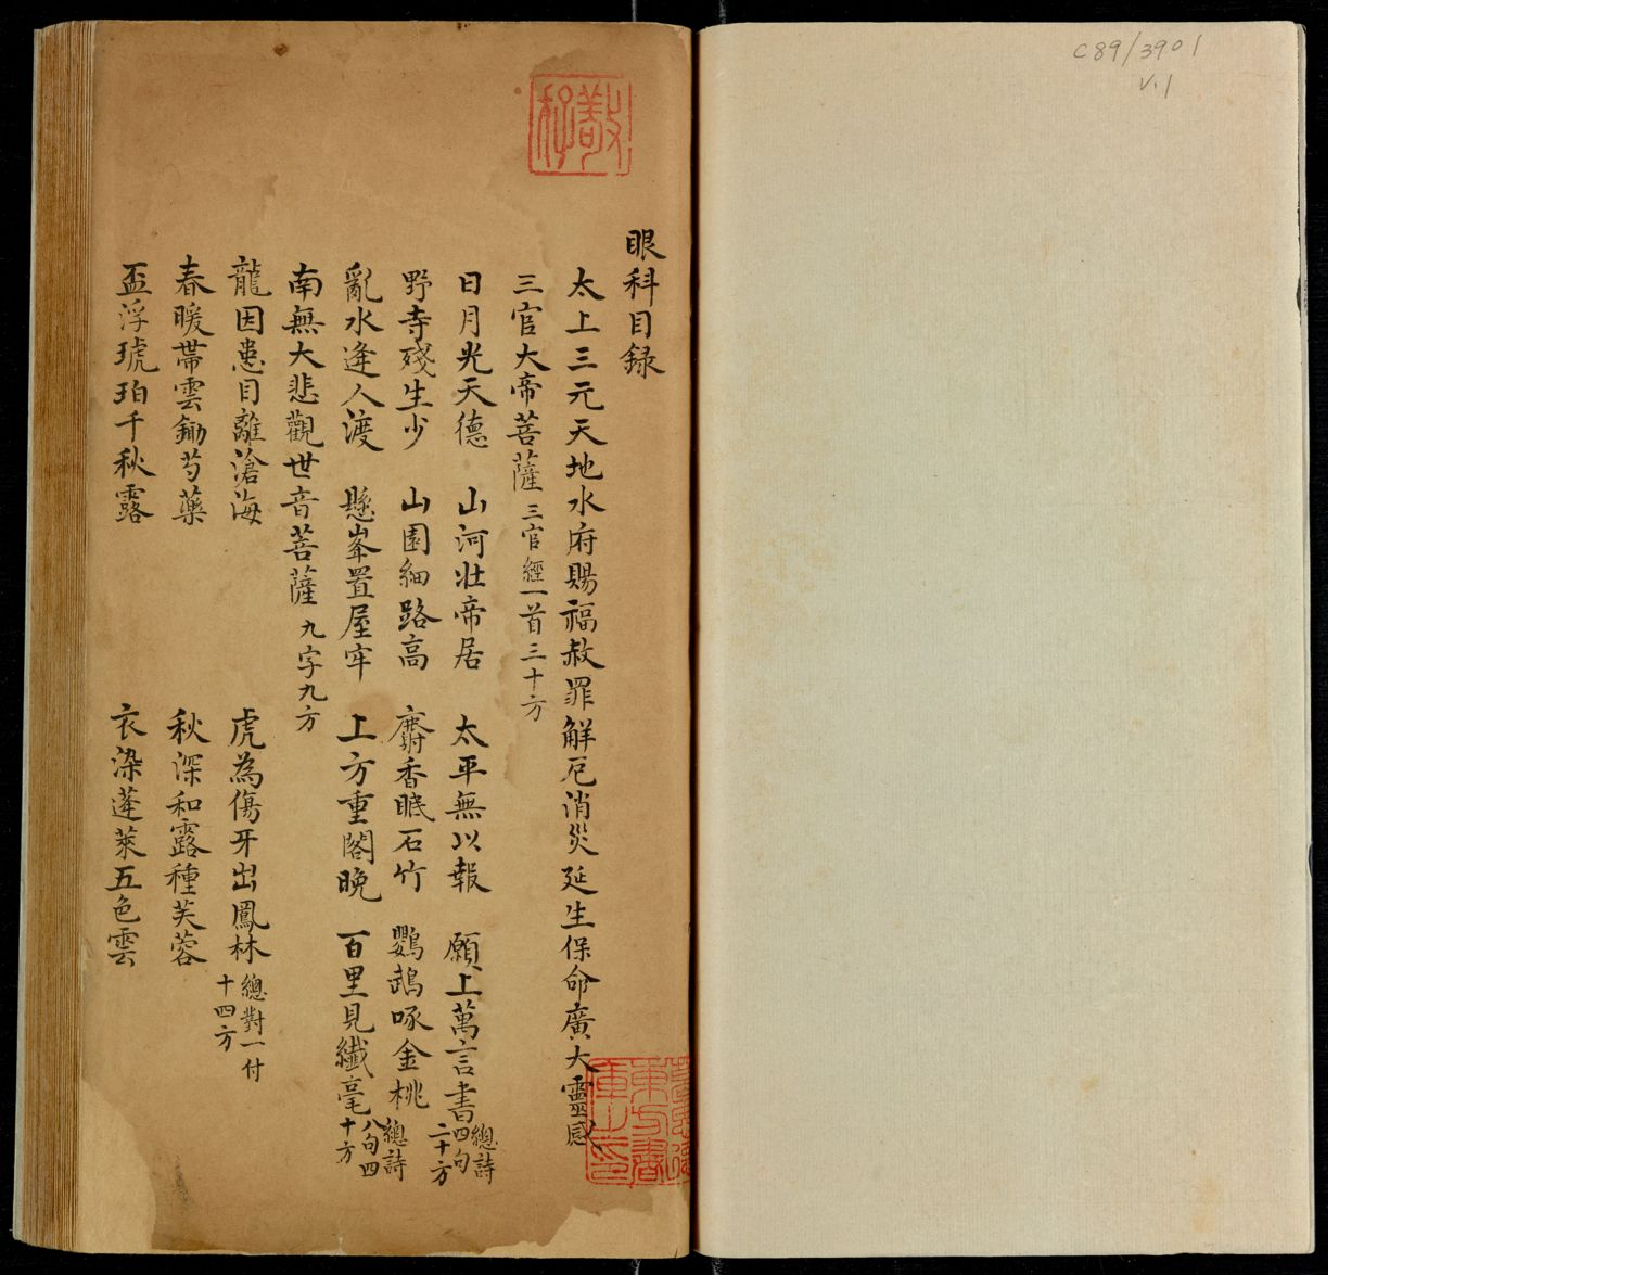 C89/3901
V.1
眼科目録
太上三元天地水府賜福赦罪解厄消災延生保命廣大靈感
三官大帝菩薩 三官經一首三十方
日月光天德 山河壯帝居 太平無以報 願上萬言書 總詩四句二十方
野寺殘生少 山園細路高 麝香眠石竹 鸚鵡啄金桃 總詩八句四十方
亂水逢人渡 懸峯置屋牢 上方重閣晚 百里見纖毫
南無大悲觀世音菩薩 九字九方
龍因患目離滄海 虎為傷牙出鳳林 總對一付十四方
春暖帶雲鋤芍藥 秋深和露種芙蓉
盃浮琥珀千秋露 衣染蓬萊五色雲